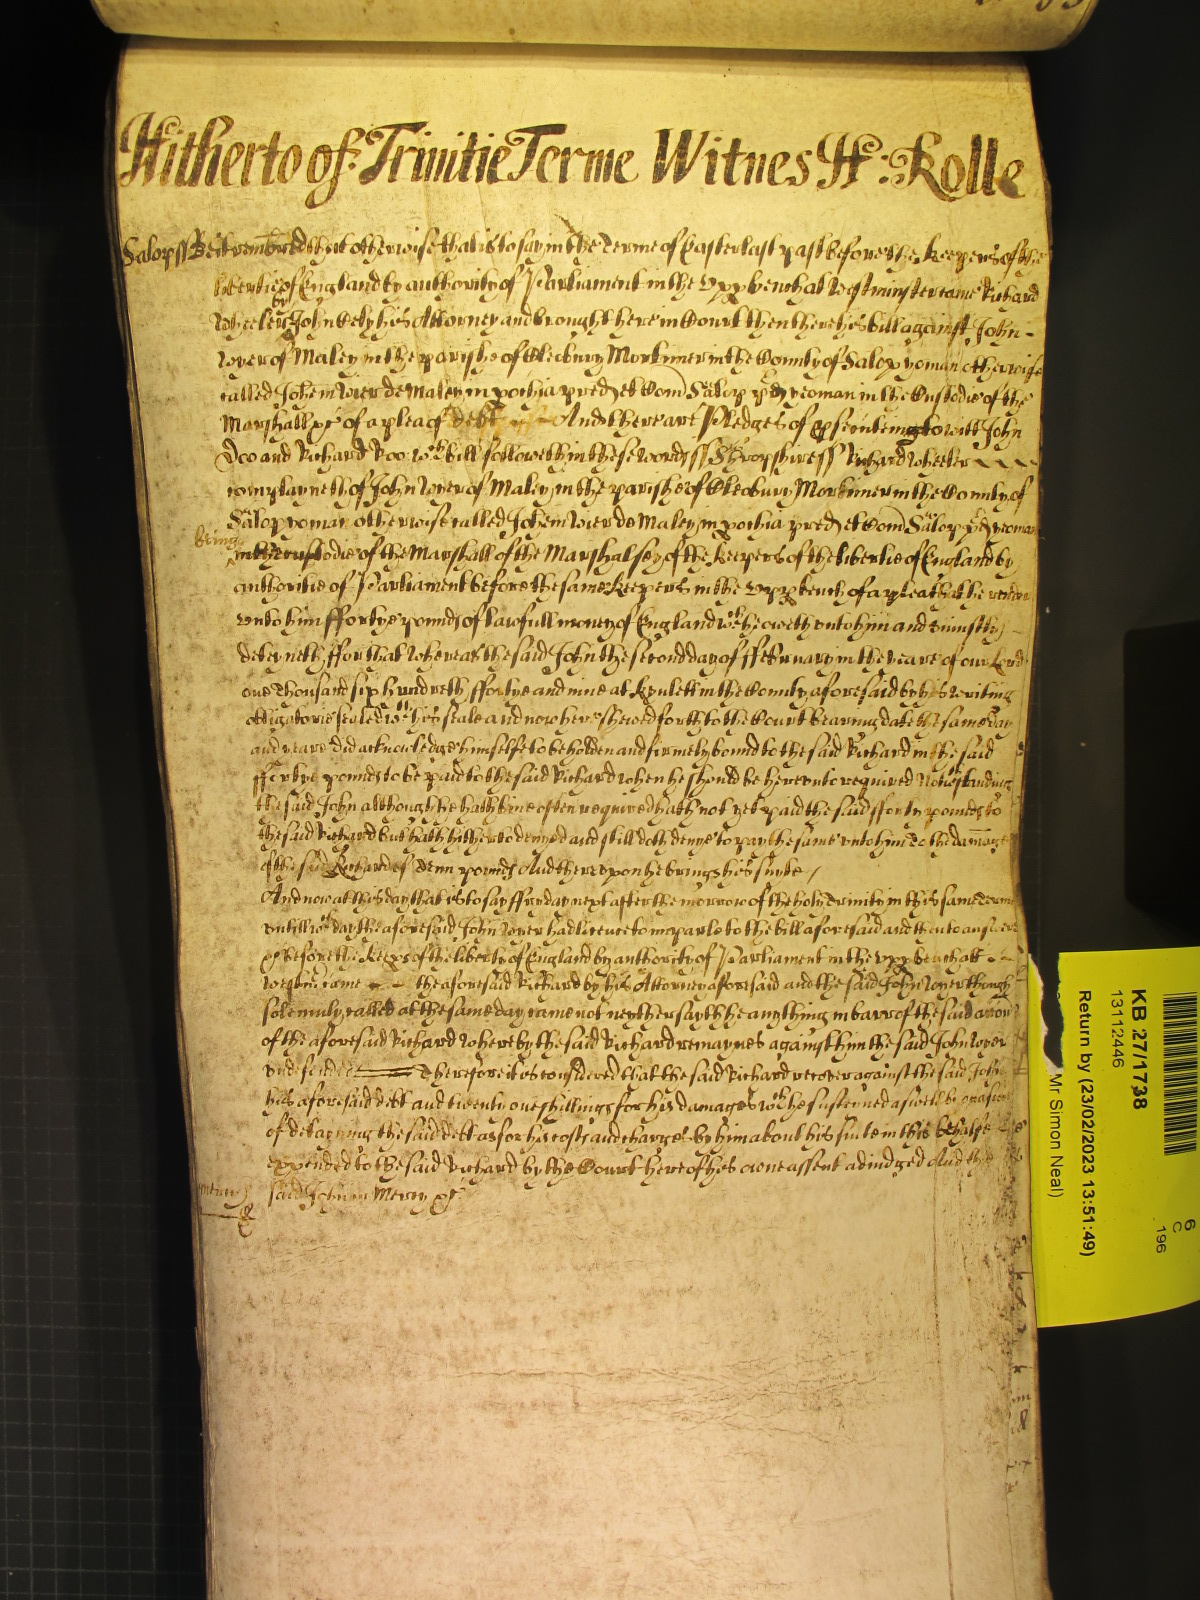 Hitherto of Trinitie Terme Witnes H: Rolle
Salop ss Be it remembred that otherwise that is to say in the Terme of Easter last past before the Keepers of the
libertie of England by authority of Parliament in the Upp bench at Westminster came Richard
Wheeler by John Cely his Attorney and brought here in Court then there his bill against John
Wyer of Maley in the parishe of Cleobury Mortimer in the County of Salop yoman otherwise
called Johem Wier de Maley in pochia pred et Com Salop pd yeoman in the Custodie of the
Marshall &c of a plea of debt And there are Pledges of psecuting to witt John
Doo and Richard Roo wch bill followeth in these words ss Shropshire ss Richard Wheeler
complayneth of John Wyer of Maley in the parishe of Cleobury Mortimer in the County of
Salop yoman otherwise called Johem Wier de Maley in pochia pred et Com Salop pd yeoman
being
in the custodie of the Marshall of the Marshalsey of the Keepers of the libertie of England by
authoritie of Parliament before the same Keepers in the Upp bench of a plea that he render
unto him ffortye pounds of lawfull money of England wch he oweth unto him and uniustly
deteyneth ffor that whereas the said John the second day of ffebruary in the yeare of our Lord
one Thousand six hundreth ffortye and nine at Kynlett in the County aforesaid by his writing
obligatorie sealed wth his seale and now here shewed forth to the Court bearing date the same day
and yeare did acknowledge himselfe to be holden and firmely bound to the said Richard in the said
ffortye pounds to be paid to the said Richard when he should be hereunto required Notwthstanding
the said John although he hath bine often required hath not yet paid the said fforty pounds to
the said Richard but hath hitherto denyed and still doth denye to pay the same unto him To the damage
of the said Richard of Tenn pounds And thereupon he brings his suyte
And now at this day that is to say ffryday next after the morrow of the holy Trinity in this same Terme
untill wch day the aforesaid John Wyer had licence to imparle to the bill aforesaid and then to answere
&c before the Keeps of the liberty of England by authority of Parliament in the upp bench att
Westm came the aforesaid Richard by his Attorney aforesaid and the said John Wyer though
solemnly called at the same day came not neyther sayth he any thing in barr of the said accon
of the aforesaid Richard whereby the said Richard remaynes against him the said John Wyer
undefended Therefore it is considered that the said Richard recover against the said John
his aforesaid debt and twenty one shillings for his damages wch he susteyned aswell by occasion
of detayning the said debt as for his costs and charges by him about his suite in this behalfe
expended to the said Richard by the Court here of his owne assent adiudged And the
mercy
said John in Mercy &c
KB 27/1738
13112446
Return by (23/02/2023 13:51:49)
Mr Simon Neal)
6
C
196